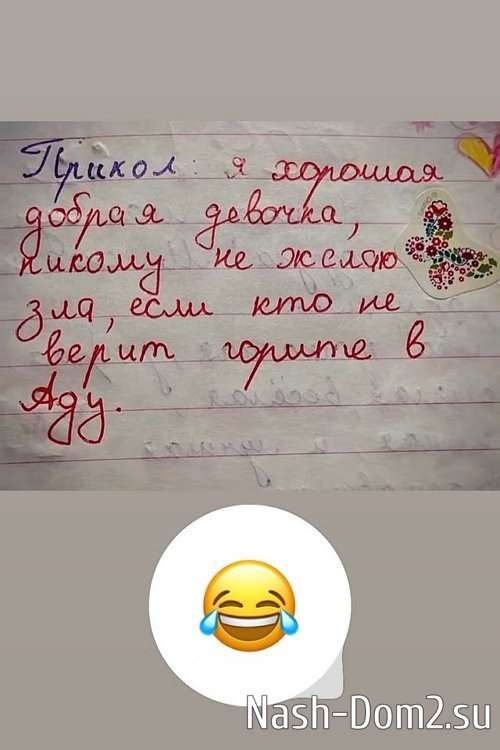 Прикол: я хорошая
добрая девочка,
никому не желаю
зла, если кто не
верит горите в
Аду.
Nash-Dom2.su